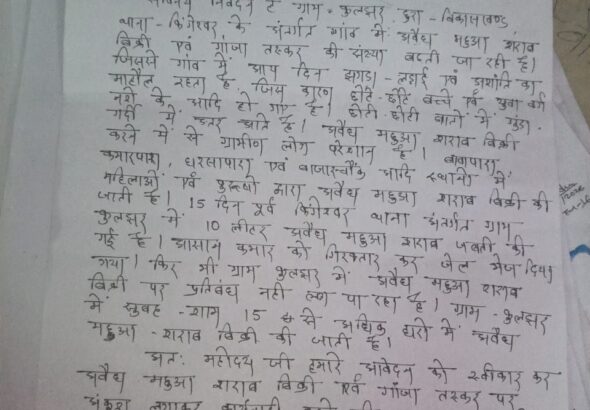 सविनय निवेदन है ग्राम - कुलझर, छुरा - विकासखण्ड
थाना - फिंगेश्वर, के अंतर्गत गांव में अवैध महुआ शराब
बिक्री एवं गांजा तस्कर की संख्या बढ़ती जा रही है।
जिससे गांव में आय दिन झगड़ा - लड़ाई एवं अशांति का
माहौल रहता है जिस कारण छोटे - छोटे बच्चे एवं युवा वर्ग
नशे के आदि हो गए है। छोटी - छोटी बातों में गुंडा
गर्दी में उतर आते है। अवैध महुआ शराब बिक्री
करने में से ग्रामीण लोग परेशान है। बावापारा,
कमारपारा, धरसापारा एवं बाजारचौक आदि स्थानों में
महिलाओं एवं पुरुषों द्वारा अवैध महुआ शराब बिक्री की
जाती है। 15 दिन पूर्व फिंगेश्वर थाना अंतर्गत ग्राम
कुलझर में 10 लीटर अवैध महुआ शराब जब्ती की
गई है। आसान कुमार को गिरफ्तार कर जेल भेज दिया
गया। फिर भी ग्राम कुलझर में अवैध महुआ शराब
बिक्री पर प्रतिबंध नहीं लग पा रहा है। ग्राम - कुलझर
में सुबह - शाम 15 से अधिक घरों में अवैध
महुआ - शराब बिक्री की जाती है।
अतः महोदय जी हमारे आवेदन को स्वीकार कर
अवैध महुआ शराब बिक्री एवं गांजा तस्कर पर
अंकुश लगाकर कार्यवाही